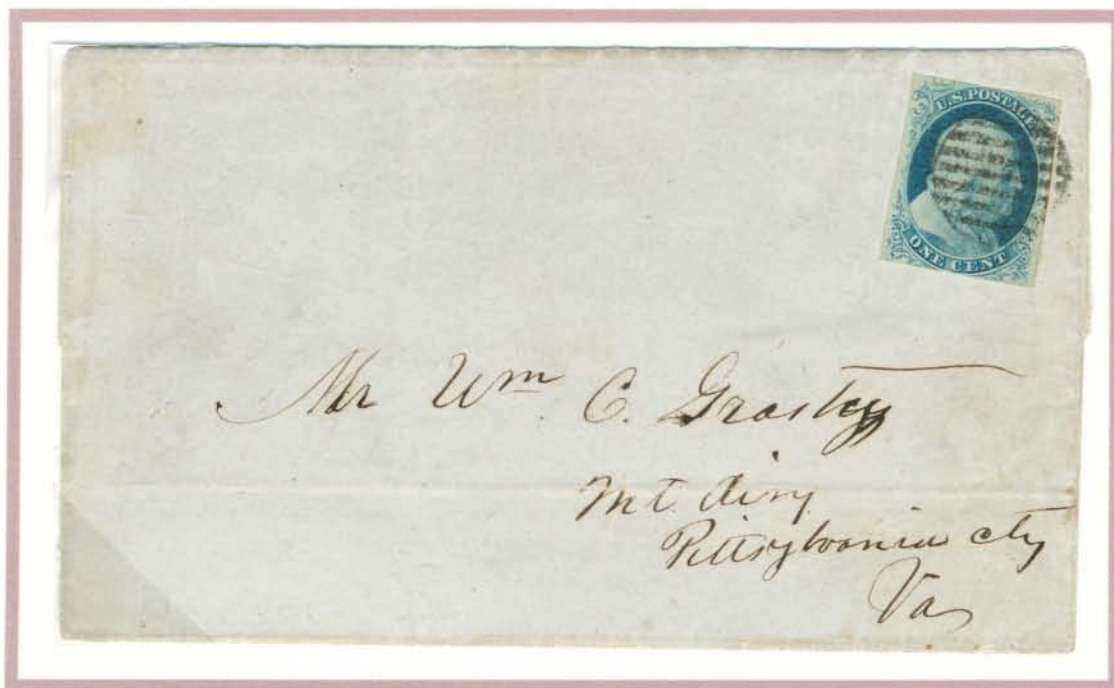 U.S. POSTAGE
ONE CENT
Mr Wm C. Grasty
Mt. Airy
Pittsylvania cty
Va